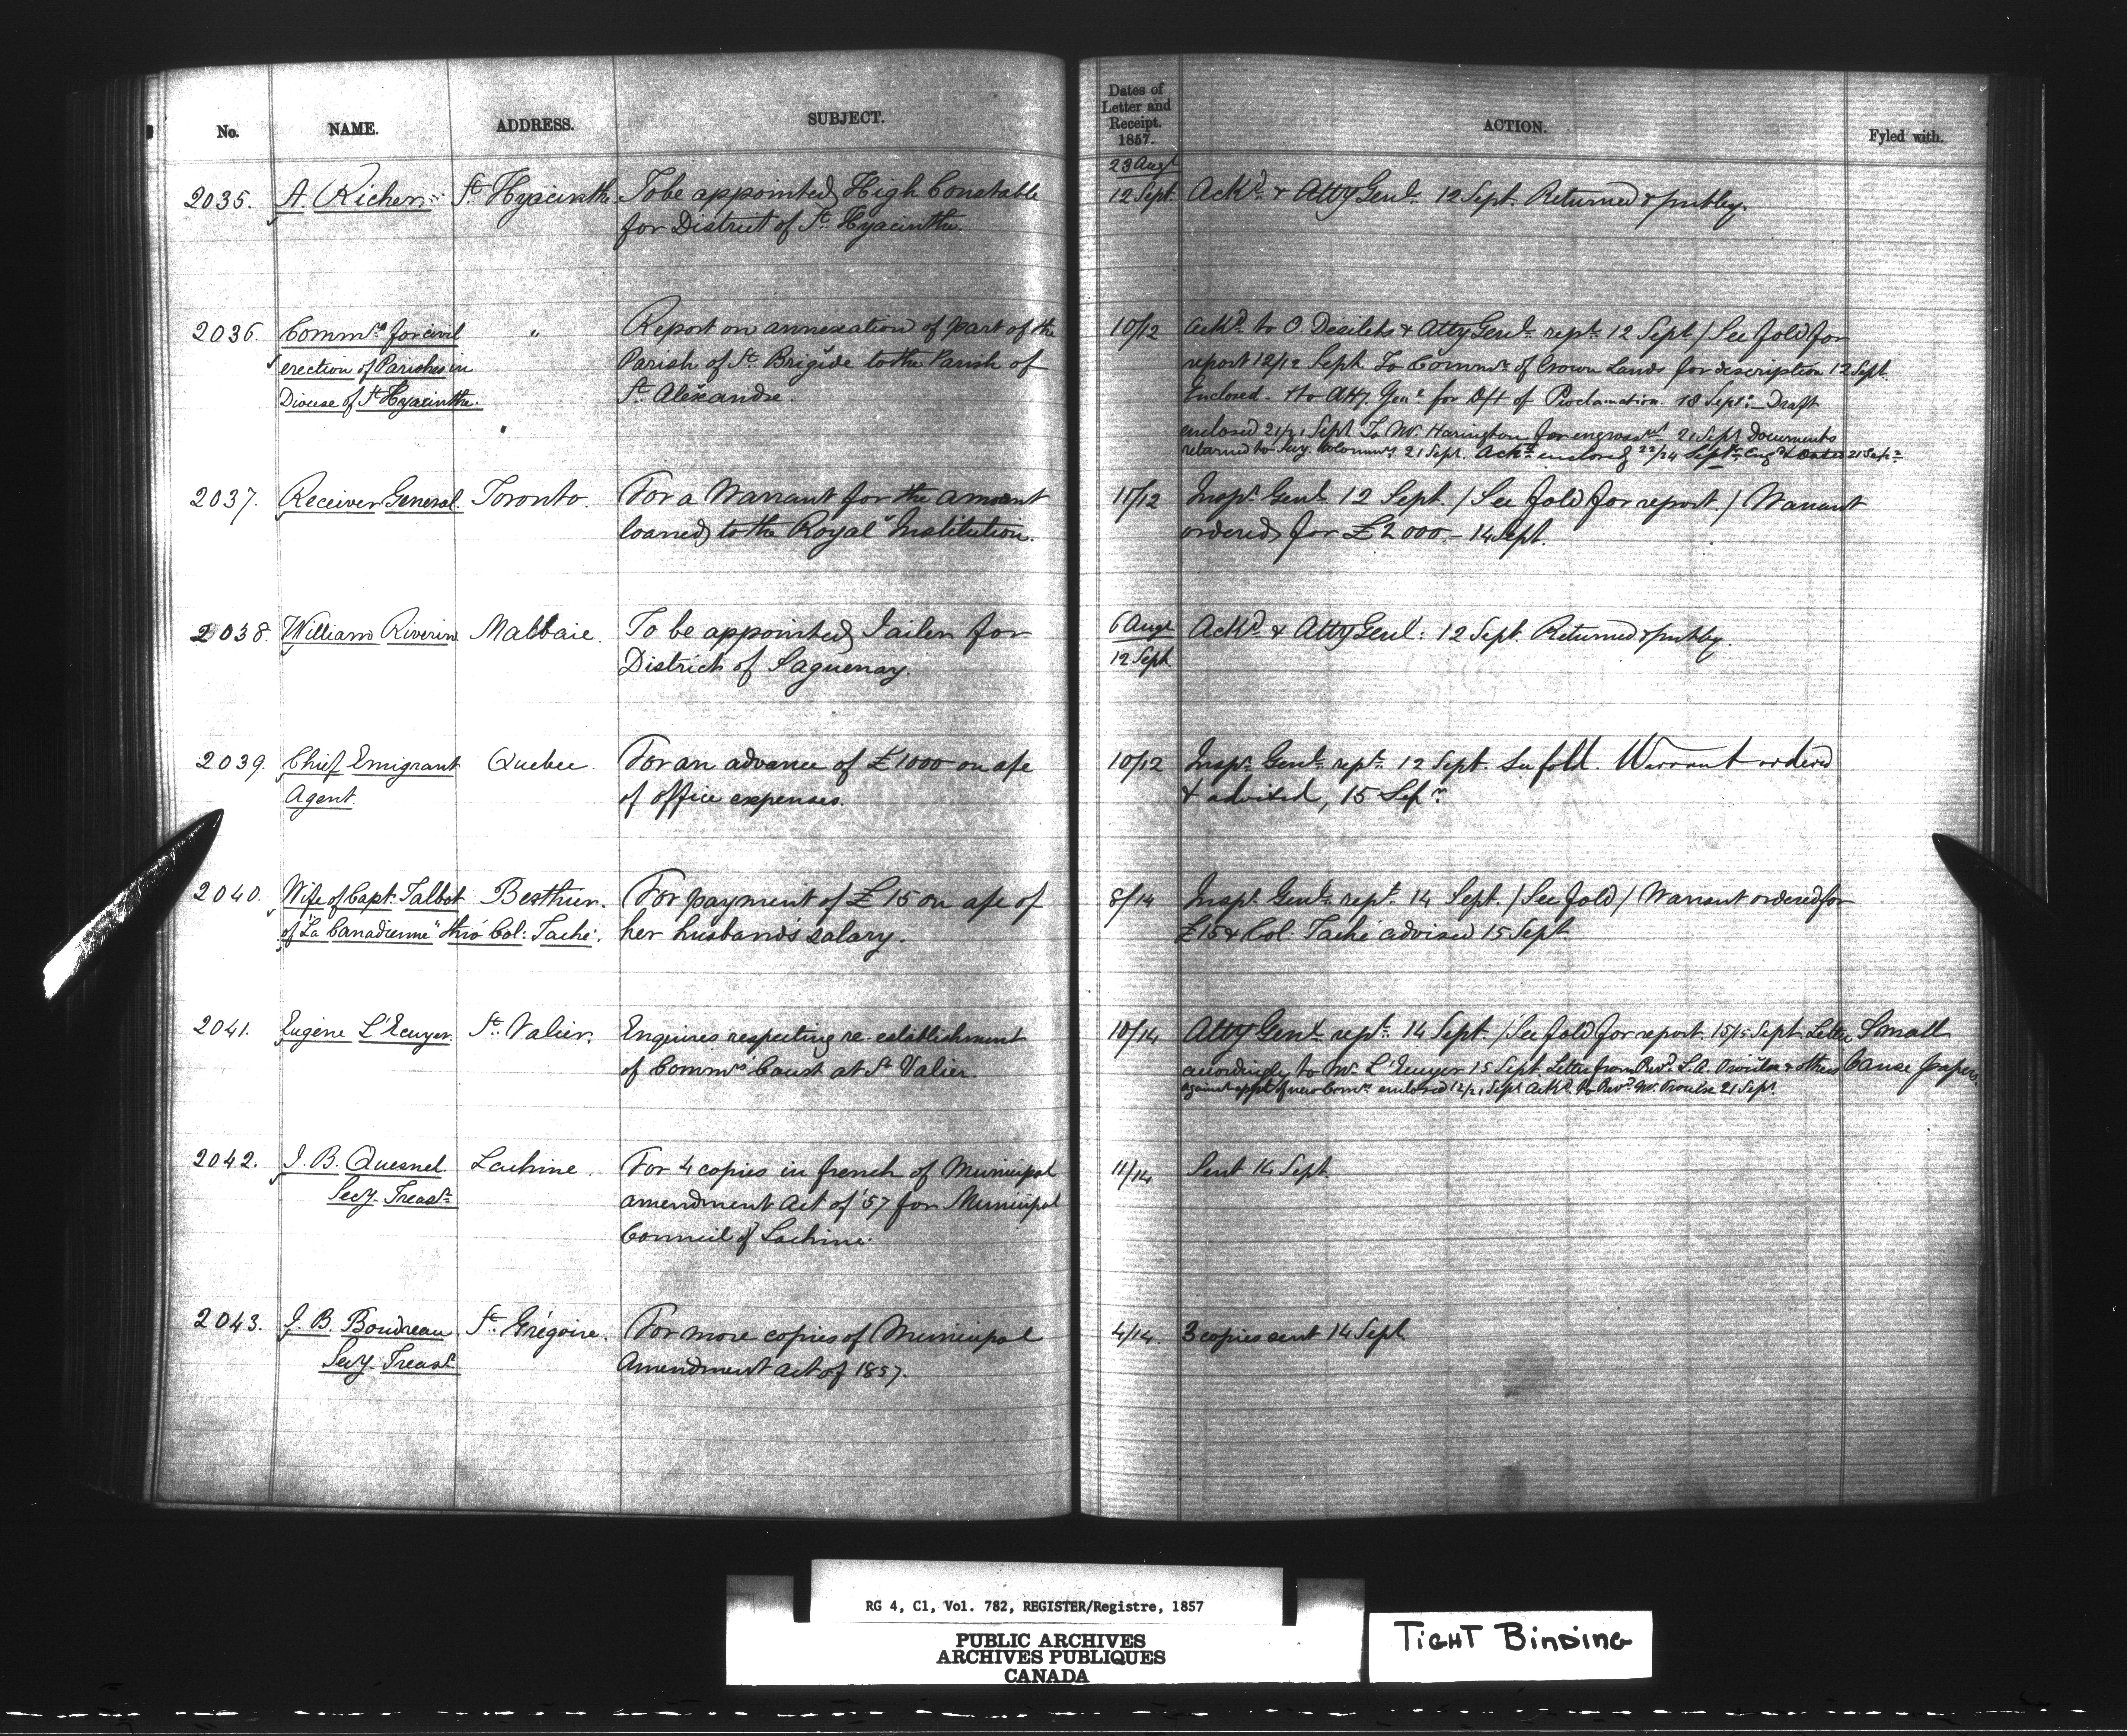 No. NAME. ADDRESS. SUBJECT.
Dates of
Letter and
Receipt.
1857.
ACTION. Fyled with.
23 Augt
2035. A. Richer St Hyacinthe To be appointed High Constable 12 Sept Ackd & Atty Genl 12 Sept Returned & putby.
for District of St Hyacinthe.
2036. Commrs for civil " Report on annexation of part of the 10/12 Ackd to O. Desilets & Atty Genl rept 12 Sept / See fold for
erection of Parishes in Parish of St Brigide to the Parish of report 12/12 Sept To Commr of Crown Lands for description 12 Sept.
Diocese of St Hyacinthe. St Alexandre. Enclosed. & to Atty Genl for Dft of Proclamation. 18 Sept. Draft
enclosed 21/21 Sept To Mr. Harington for engrossmt 21 Sept Documents
returned to Secy. Commrs 21 Sept. Ackd enclosed 22/24 Sept
2037. Receiver General. Toronto. For a Warrant for the amount 11/12 Inspr Genl 12 Sept. / See fold for report. / Warrant
loaned to the Royal Institution. ordered for £2000.- 14 Sept.
2038. William Riverin Malbaie. To be appointed Jailer for 6 Augt Ackd & Atty Genl: 12 Sept. Returned & putby.
District of Saguenay. 12 Sept
2039. Chief Emigrant Quebec. For an advance of £1000 on a/c 10/12 Inspr Genl rept 12 Sept. See fold. Warrant ordered
Agent. of office expenses. & advised, 15 Sepr.
2040. Wife of Capt. Talbot Berthier. For payment of £15 on a/c of 8/14 Inspr Genl rept 14 Sept. / See fold / Warrant ordered for
of "La Canadienne" thro' Col: Taché. her husband's salary. £15 & Col. Taché advised 15 Sept.
2041. Eugène L'Ecuyer. St Valier. Enquires respecting re-establishment 10/14 Atty Genl rept 14 Sept. / See fold for report 15/15 Sept Letter Small
of Commrs Court at St Valier. accordingly to Mr. L'Ecuyer 15 Sept. Letter from Revd L.A. Proulx & others Cause papers.
against appt of new Comrs enclosed 12/21 Sept Ackd to Revd Mr. Proulx 21 Sept.
2042. J. B. Quesnel Lachine. For 4 copies in french of Municipal 11/14 Sent 14 Sept.
Secy. Treasr amendment Act of '57 for Municipal
Council of Lachine.
2043. J. B. Boudreau St Grégoire. For more copies of Municipal 4/14. 3 copies sent 14 Sept
Secy. Treasr Amendment Act of 1857.
RG 4, C1, Vol. 782, REGISTER/Registre, 1857
PUBLIC ARCHIVES
ARCHIVES PUBLIQUES
CANADA
TIGHT BINDING